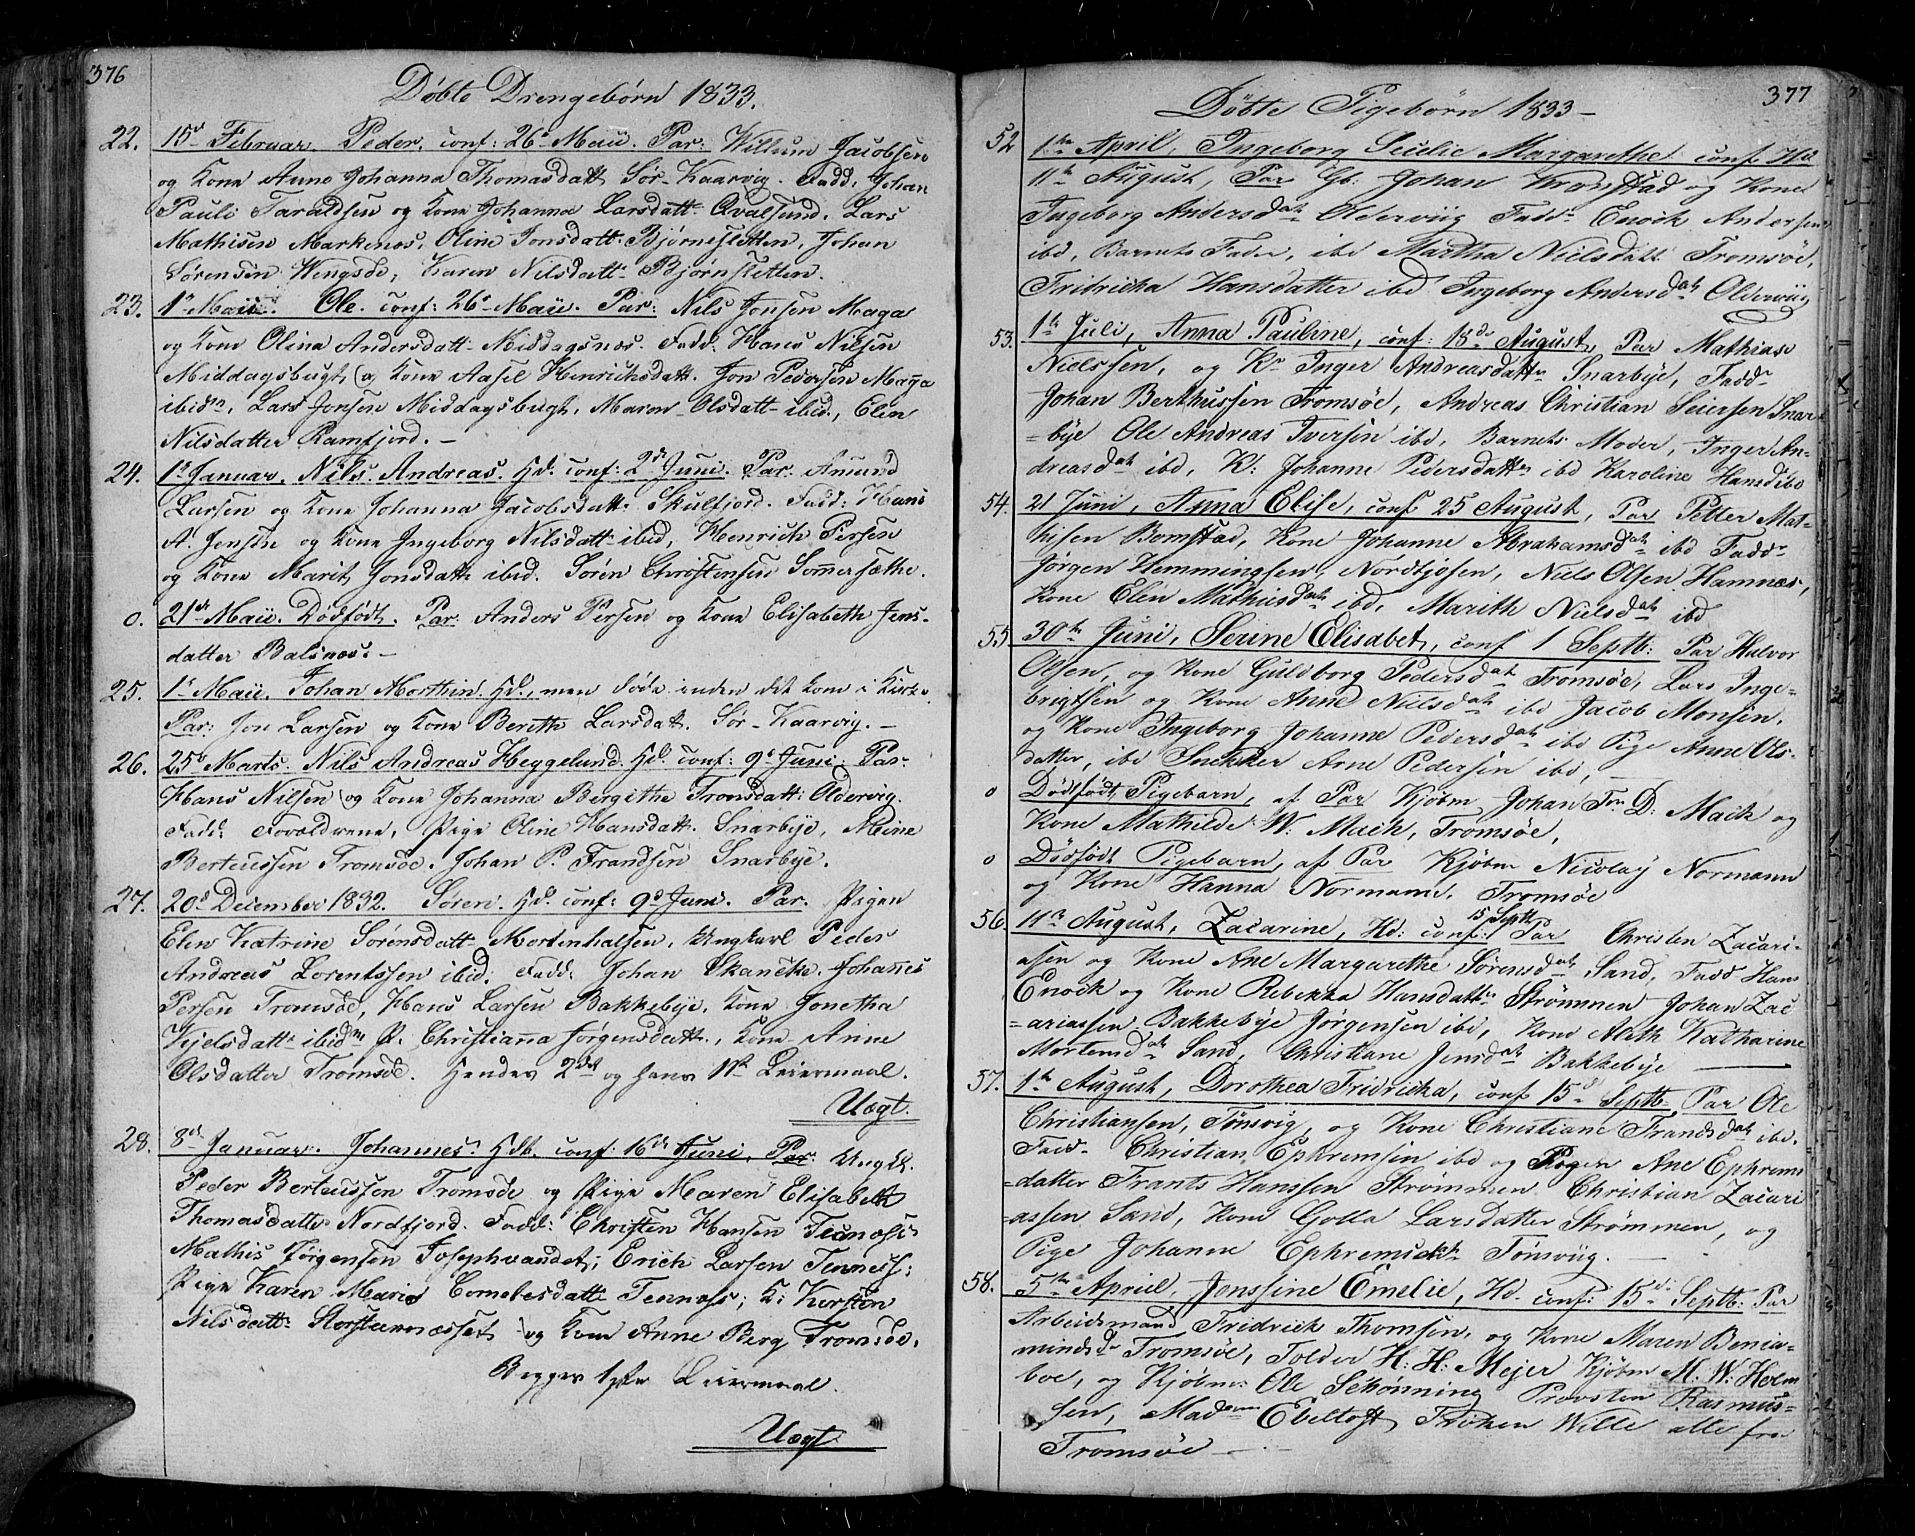 376
Döbte Drengebörn 1833.
22. 15d Februar Peder, conf: 26d Maii. Par: Willum Jacobsen
og Kone Anne Johanna Thomasdatt Sör-Kaarvig. Fadd: Johan
Pauli Taraldsen og Kone Johanna Larsdatt: Qvalsund. Lars
Mathisen Markenes, Oline Jonsdatt: Björnesletten, Johan
Sörensen Vengsöe, Karen Nilsdatt: Björnsletten.
23. 1d Maii. Ole. conf: 26d Maii. Par: Nils Jonsen Maga
og Kone Olina Andersdatt: Middagsnes. Fadd: Hans Nilsen
Middagsbugt, og Kone Aasel Henrichsdatt. Jon Pedersen Maga
ibidn, Lars Jonsen Middagsbugt, Maren Olsdatt ibid., Elen
Nilsdatter Ramfjord. –
24. 1d Januar. Nils Andreas. Hd. conf: 2d Juni. Par: Amund
Larsen og Kone Johanna Jacobsdatt: Skulsfjord. Fadd: Hans
A. Jensen og Kone Ingeborg Nilsdatt ibid, Henrich Persen
og Kone Marit Jonsdatt ibid. Sören Christensen Sommersæthe.
0. 21d Maii. Dödfödt. Par: Anders Persen og Kone Elisabeth Jens-
datter Balsnes. –
25. 1d Maii. Johan Morthin. Hd., men döde inden det kom i Kirke
Par: Jon Larsen og Kone Berith Larsdatt. Sör-Kaarvig. –
26. 25d Marts. Nils Andreas Heggelund. Hd. conf: 9d Juni. Par:
Hans Nilsen og Kone Johanna Bergithe Tronsdatt: Oldervig.
Fadd: Forældrene, Pige Oline Hansdatt. Snarbye,
Berteussen Tromsöe. Johan P. Frandsen Snarbye.
27. 20d December 1832. Sören. Hd. conf: 9d Juni. Par. Pigen
Elen Katrine Sörensdatt: Mortenhalsen, Ungkarl Peder
Andreas Lorentssen ibid: Fadd: Johan Skancke. Johannes
Persen Tromsöe, Hans Larsen Bakkebye, Kone Jonetha
Kjelsdatt: ibidm P. Christianna Jörgensdatt., Kone Anne
Olsdatter Tromsöe. Hendes 2det og hans 1ste Leiermaal.
Uægt.
28. 8d Januar. Johannes. Hdb. conf: 16d Juni. Par: Ungk.
Peder Berteussen Tromsöe og Pige Maren Elisabeth
Thomasdatter Nordfjord. Fadd: Christen Hansen Tennæss:
Mathis Jörgensen Josephvandet; Erich Larsen Tenness:
Pige Karen Maria Cornelesdatt Tennæss; K: Kersten
Nilsdatt: Storstennæsset og Kone Anne Berg Tromsöe.
Begges 1ste Leiermaal.
Uægt.
377
Döbte Pigebörn 1833 –
52 1te April, Ingeborg Secilie Margarethe conf Hd
11te August, Par Gb: Johan Kronstad og Kone
Ingeborg Andersdatr Olderviig Fadd: Enock Andersen
ibd, Barnets Fader, ibd Martha Nielsdatt Tromsöe,
Fridricka Hansdatter ibd Ingeborg Andersdatr Olderviig
53. 1te Juli, Anna Pauline, conf: 18de August, Par Mathias
Nielssen, og Ke Inger Andreasdattr Snarbye, Fadd:
Johan Berthussen Tromsöe, Andreas Christian Seiersen Snar
=bye Ole Andreas Iversen ibd, Barnets Moder, Inger An-
dreasdatr ibd, K: Johanne Pedersdattr ibd Karoline Hansd ibd
54. 21 Juni, Anna Elise, conf 25 August, Par Petter Mat-
hisen Bomstad, Kone Johanne Abrahamsdatr ibd Fadd:
Jörgen Hemmingsen, Nordkjosen, Niels Olsen Hamnes,
Kone Elen Mathiisdatr ibd, Marith Nielsdatr ibd
55 30te Juni, Serine Elisabet, conf 1 Septb: Par Halvor
Olsen, og Kone Guldborg Pedersdatr Tromsöe, Lars Inge-
brigtsen og Kone Anne Nielsdatr ibd Jacob Monsen,
og Kone Ingeborg Johanne Pedersdatr ibd Pige Anne Ols-
datter, ibd Snekker Arne Pedersen ibd,
o Dödfödt Pigebarn, af Par Kjöbm Johan Fr. D: Mack og
Kone Mathilde W: Mack, Tromsöe,
o Dödfödt Pigebarn, af Par Kjöbm Nicolay Normann
og Kone Hanna Normann. Tromsöe
56. 11te August, Zacarine, Hd: conf: 15 Septb Par Christen Zacari-
asen og Kone Ane Margarethe Sörensdatr Sand, Fadd Hans
Enock og Kone Rebekka Hansdattr Strömmen Johan Zac
=ariassen Bakkebye Jörgensen ibd, Kone Aleth Katharine
Mortensdatr Sand, Christiane Jensdatr Bakkebye
57. 1te August, Dorothea Fridricka, conf 15de Septb: Par Ole
Christiansen, Tönsvig, og Kone Christiane Frandsdatr ibd.
Fadd: Christian Ephremsen ibd og Pigen Ane Ephrems
=datter Frants Hanssen Strömmen Christian Zacari
=assen Sand, Kone Golla Larsdatter Strömmen, og
Pige Johanne Ephremsdatr Tönsviig.
58. 5te Apriil, Jenssine Emelie, Hd. conf: 15de Septb: Par
Arbeidsmand Fridrick Thomsen, og Kone Maren Benia-
minsdr Tromsöe, Tolder H: H: Mejer Kjöbm M. W: Holm
boe, og Kjöbm: Ole Schönning Provsten Rasmus-
sen, Madam Ebeltoft Fröken Wille alle fra
Tromsöe –